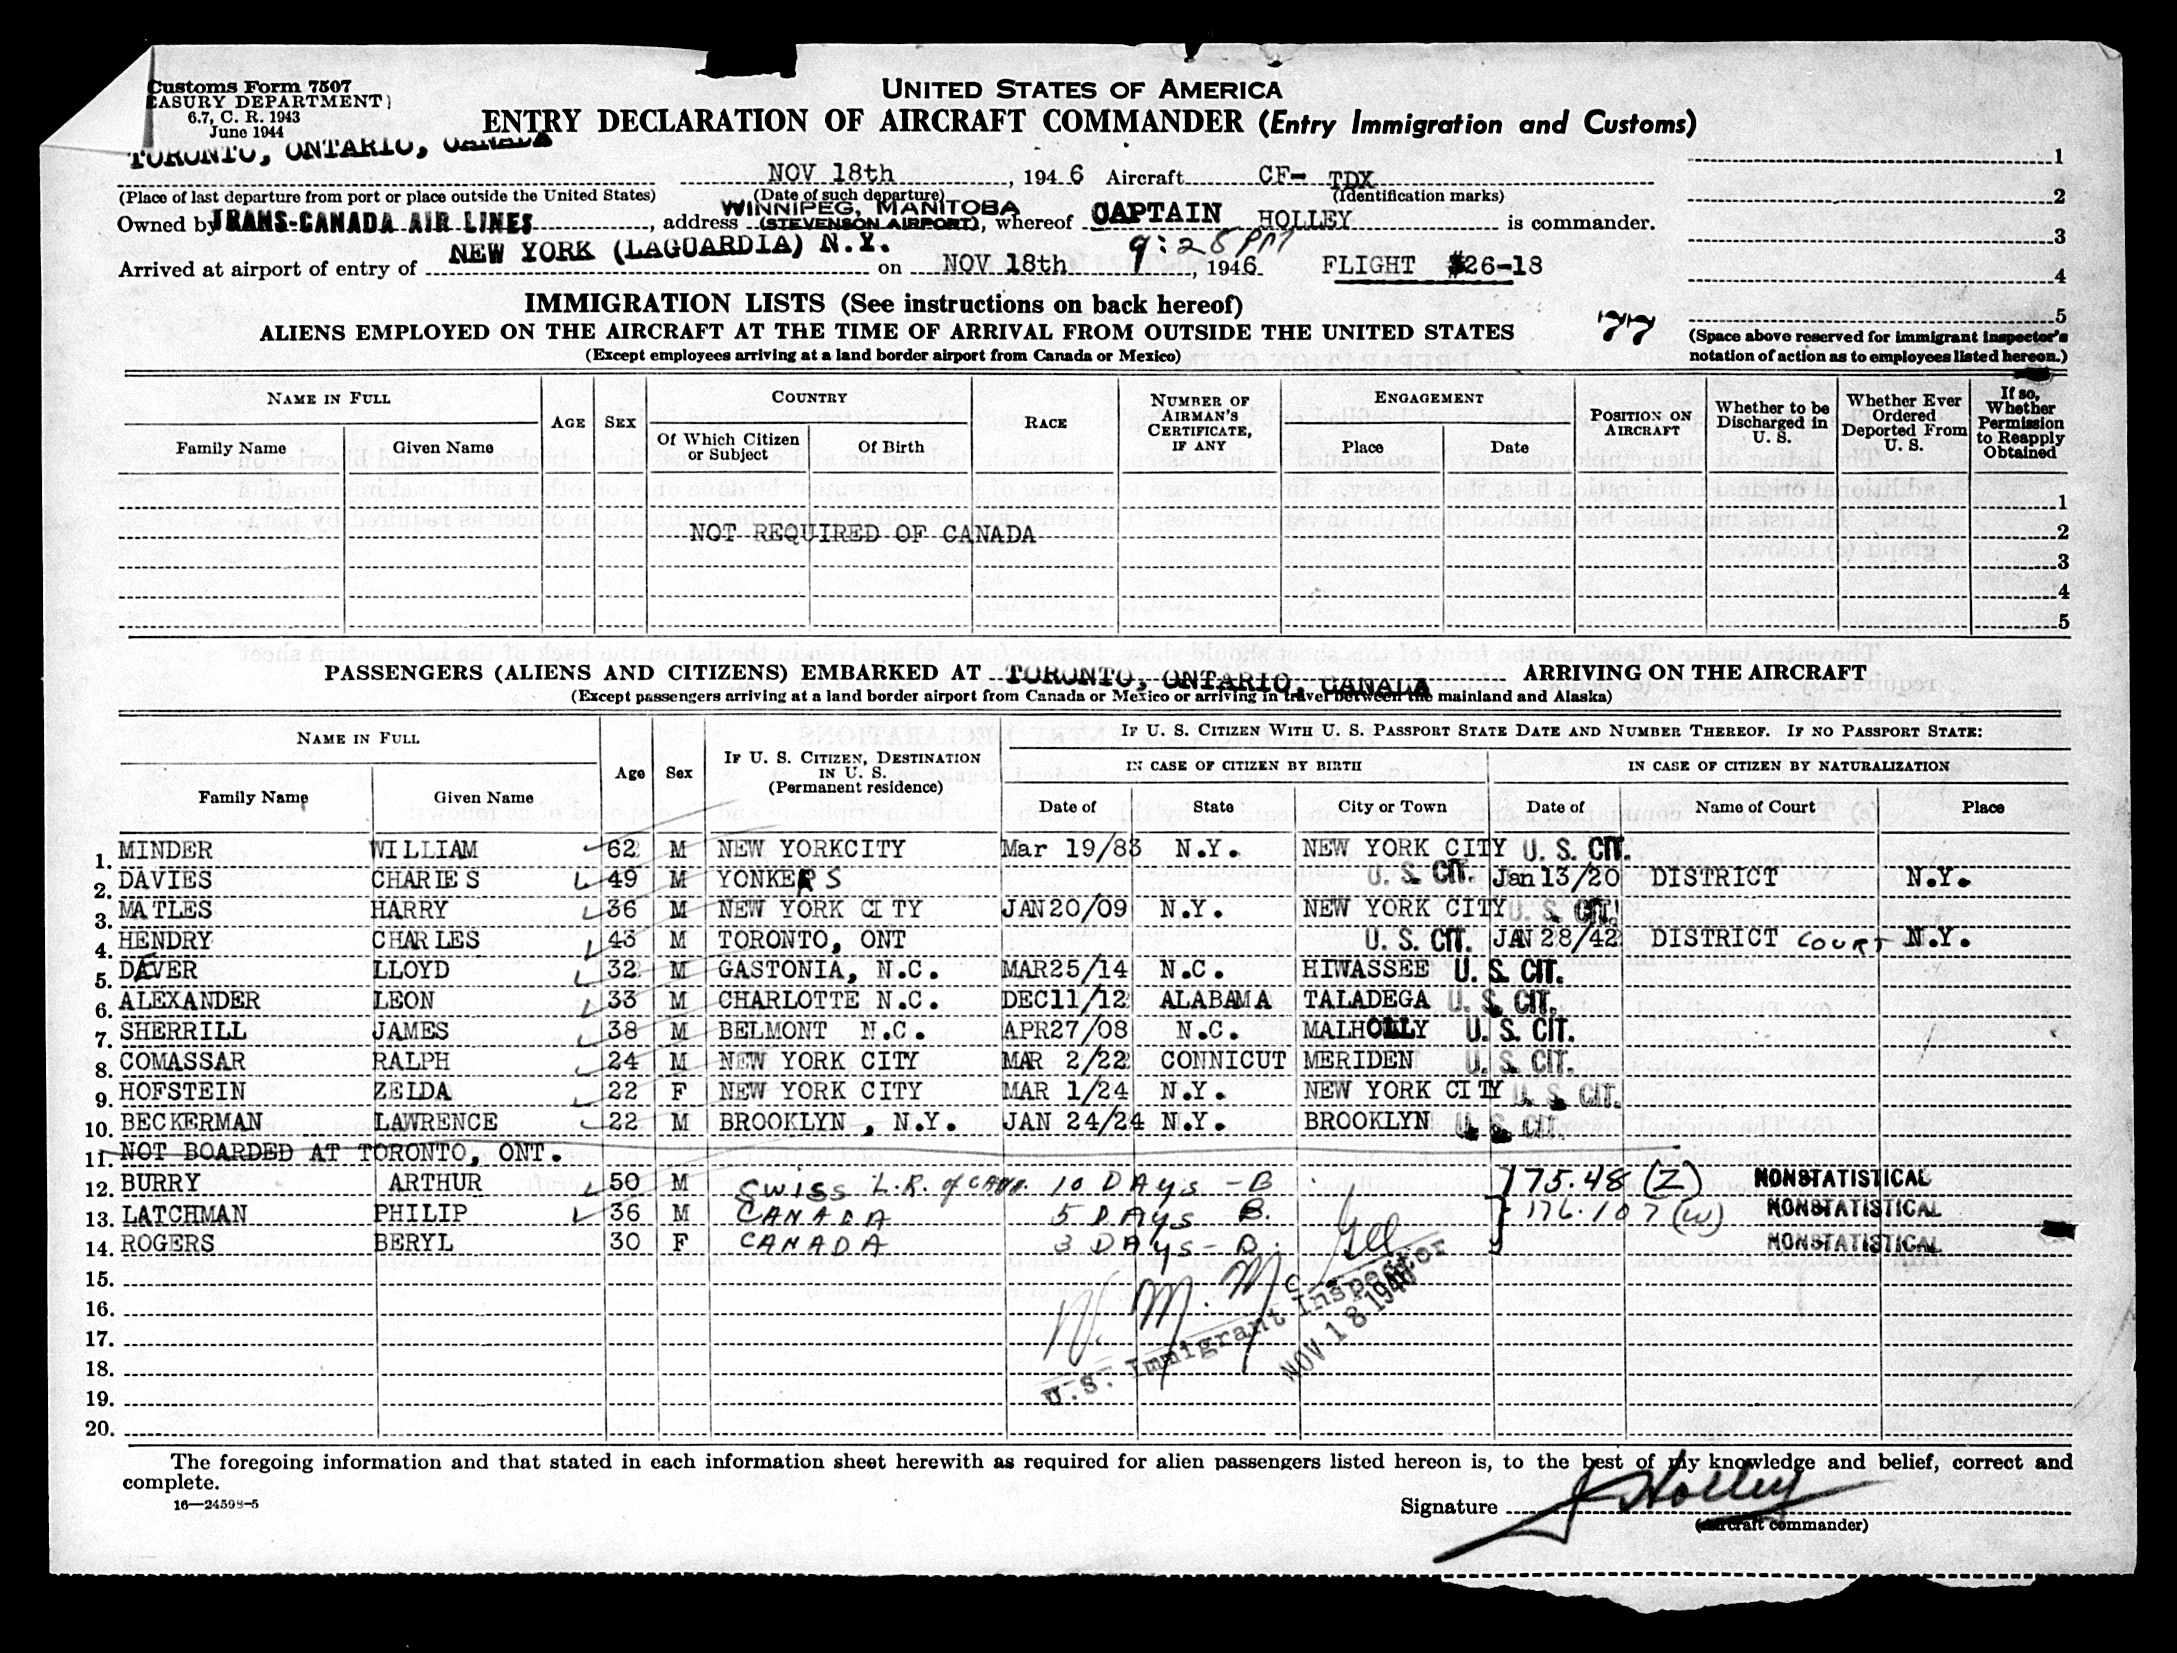 Customs Form 7507
EASURY DEPARTMENT)
6.7, C. R. 1943
June 1944
UNITED STATES OF AMERICA
ENTRY DECLARATION OF AIRCRAFT COMMANDER (Entry Immigration and Customs)
TORONTO, ONTARIO, CANADA NOV 18th, 1946 Aircraft CF- TDX
(Place of last departure from port or place outside the United States) (Date of such departure) (Identification marks)
WINNIPEG, MANITOBA
Owned by TRANS-CANADA AIR LINES, address (STEVENSON AIRPORT), whereof CAPTAIN HOLLEY is commander.
9:28 PM
Arrived at airport of entry of NEW YORK (LAGUARDIA) N.Y. on NOV 18th, 1946 FLIGHT #26-18
1
2
3
4
5
IMMIGRATION LISTS (See instructions on back hereof)
ALIENS EMPLOYED ON THE AIRCRAFT AT THE TIME OF ARRIVAL FROM OUTSIDE THE UNITED STATES 77
(Except employees arriving at a land border airport from Canada or Mexico)
(Space above reserved for immigrant inspector's
notation of action as to employees listed hereon.)
NAME IN FULL AGE SEX COUNTRY RACE NUMBER OF AIRMAN'S CERTIFICATE, IF ANY ENGAGEMENT POSITION ON AIRCRAFT Whether to be Discharged in U. S. Whether Ever Ordered Deported From U. S. If so, Whether Permission to Reapply Obtained
Family Name Given Name Of Which Citizen or Subject Of Birth Place Date
1
NOT REQUIRED OF CANADA 2
3
4
5
PASSENGERS (ALIENS AND CITIZENS) EMBARKED AT TORONTO, ONTARIO, CANADA ARRIVING ON THE AIRCRAFT
(Except passengers arriving at a land border airport from Canada or Mexico or arriving in travel between the mainland and Alaska)
NAME IN FULL Age Sex IF U. S. CITIZEN, DESTINATION IN U. S. (Permanent residence) IF U. S. CITIZEN WITH U. S. PASSPORT STATE DATE AND NUMBER THEREOF. IF NO PASSPORT STATE:
IN CASE OF CITIZEN BY BIRTH IN CASE OF CITIZEN BY NATURALIZATION
Family Name Given Name Date of State City or Town Date of Name of Court Place
1. MINDER WILLIAM 62 M NEW YORKCITY Mar 19/83 N.Y. NEW YORK CITY U. S. CIT.
2. DAVIES CHARLES 49 M YONKERS U. S. CIT. Jan 13/20 DISTRICT N.Y.
3. MATLES HARRY 36 M NEW YORK CITY JAN20/09 N.Y. NEW YORK CITY U. S. CIT.
4. HENDRY CHARLES 43 M TORONTO, ONT U. S. CIT. JAN 28/42 DISTRICT COURT N.Y.
5. DAVER LLOYD 32 M GASTONIA, N.C. MAR25/14 N.C. HIWASSEE U. S. CIT.
6. ALEXANDER LEON 33 M CHARLOTTE N.C. DEC11/12 ALABAMA TALADEGA U. S. CIT.
7. SHERRILL JAMES 38 M BELMONT N.C. APR27/08 N.C. MALHOLLY U. S. CIT.
8. COMASSAR RALPH 24 M NEW YORK CITY MAR 2/22 CONNICUT MERIDEN U. S. CIT.
9. HOFSTEIN ZELDA 22 F NEW YORK CITY MAR 1/24 N.Y. NEW YORK CITY U. S. CIT.
10. BECKERMAN LAWRENCE 22 M BROOKLYN, N.Y. JAN 24/24 N.Y. BROOKLYN U. S. CIT.
11. NOT BOARDED AT TORONTO, ONT.
12. BURRY ARTHUR 50 M SWISS L.R. of CAN. 10 DAYS -B 175.48 (Z) NONSTATISTICAL
13. LATCHMAN PHILIP 36 M CANADA 5 DAYS B. 176.107 (W) NONSTATISTICAL
14. ROGERS BERYL 30 F CANADA 3 DAYS - B. NONSTATISTICAL
15.
16.
17.
18.
19.
20.
U.S. Immigrant Inspector
NOV 18 1946
The foregoing information and that stated in each information sheet herewith as required for alien passengers listed hereon is, to the best of my knowledge and belief, correct and
complete.
16—24598-5
Signature J Holley
(Aircraft commander)